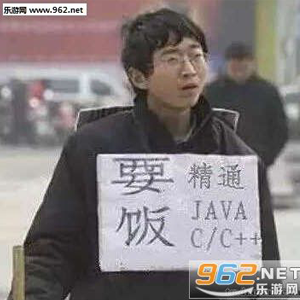 乐游网www.962.net
要饭
精通
JAVA
C/C++
962.NET
乐游网